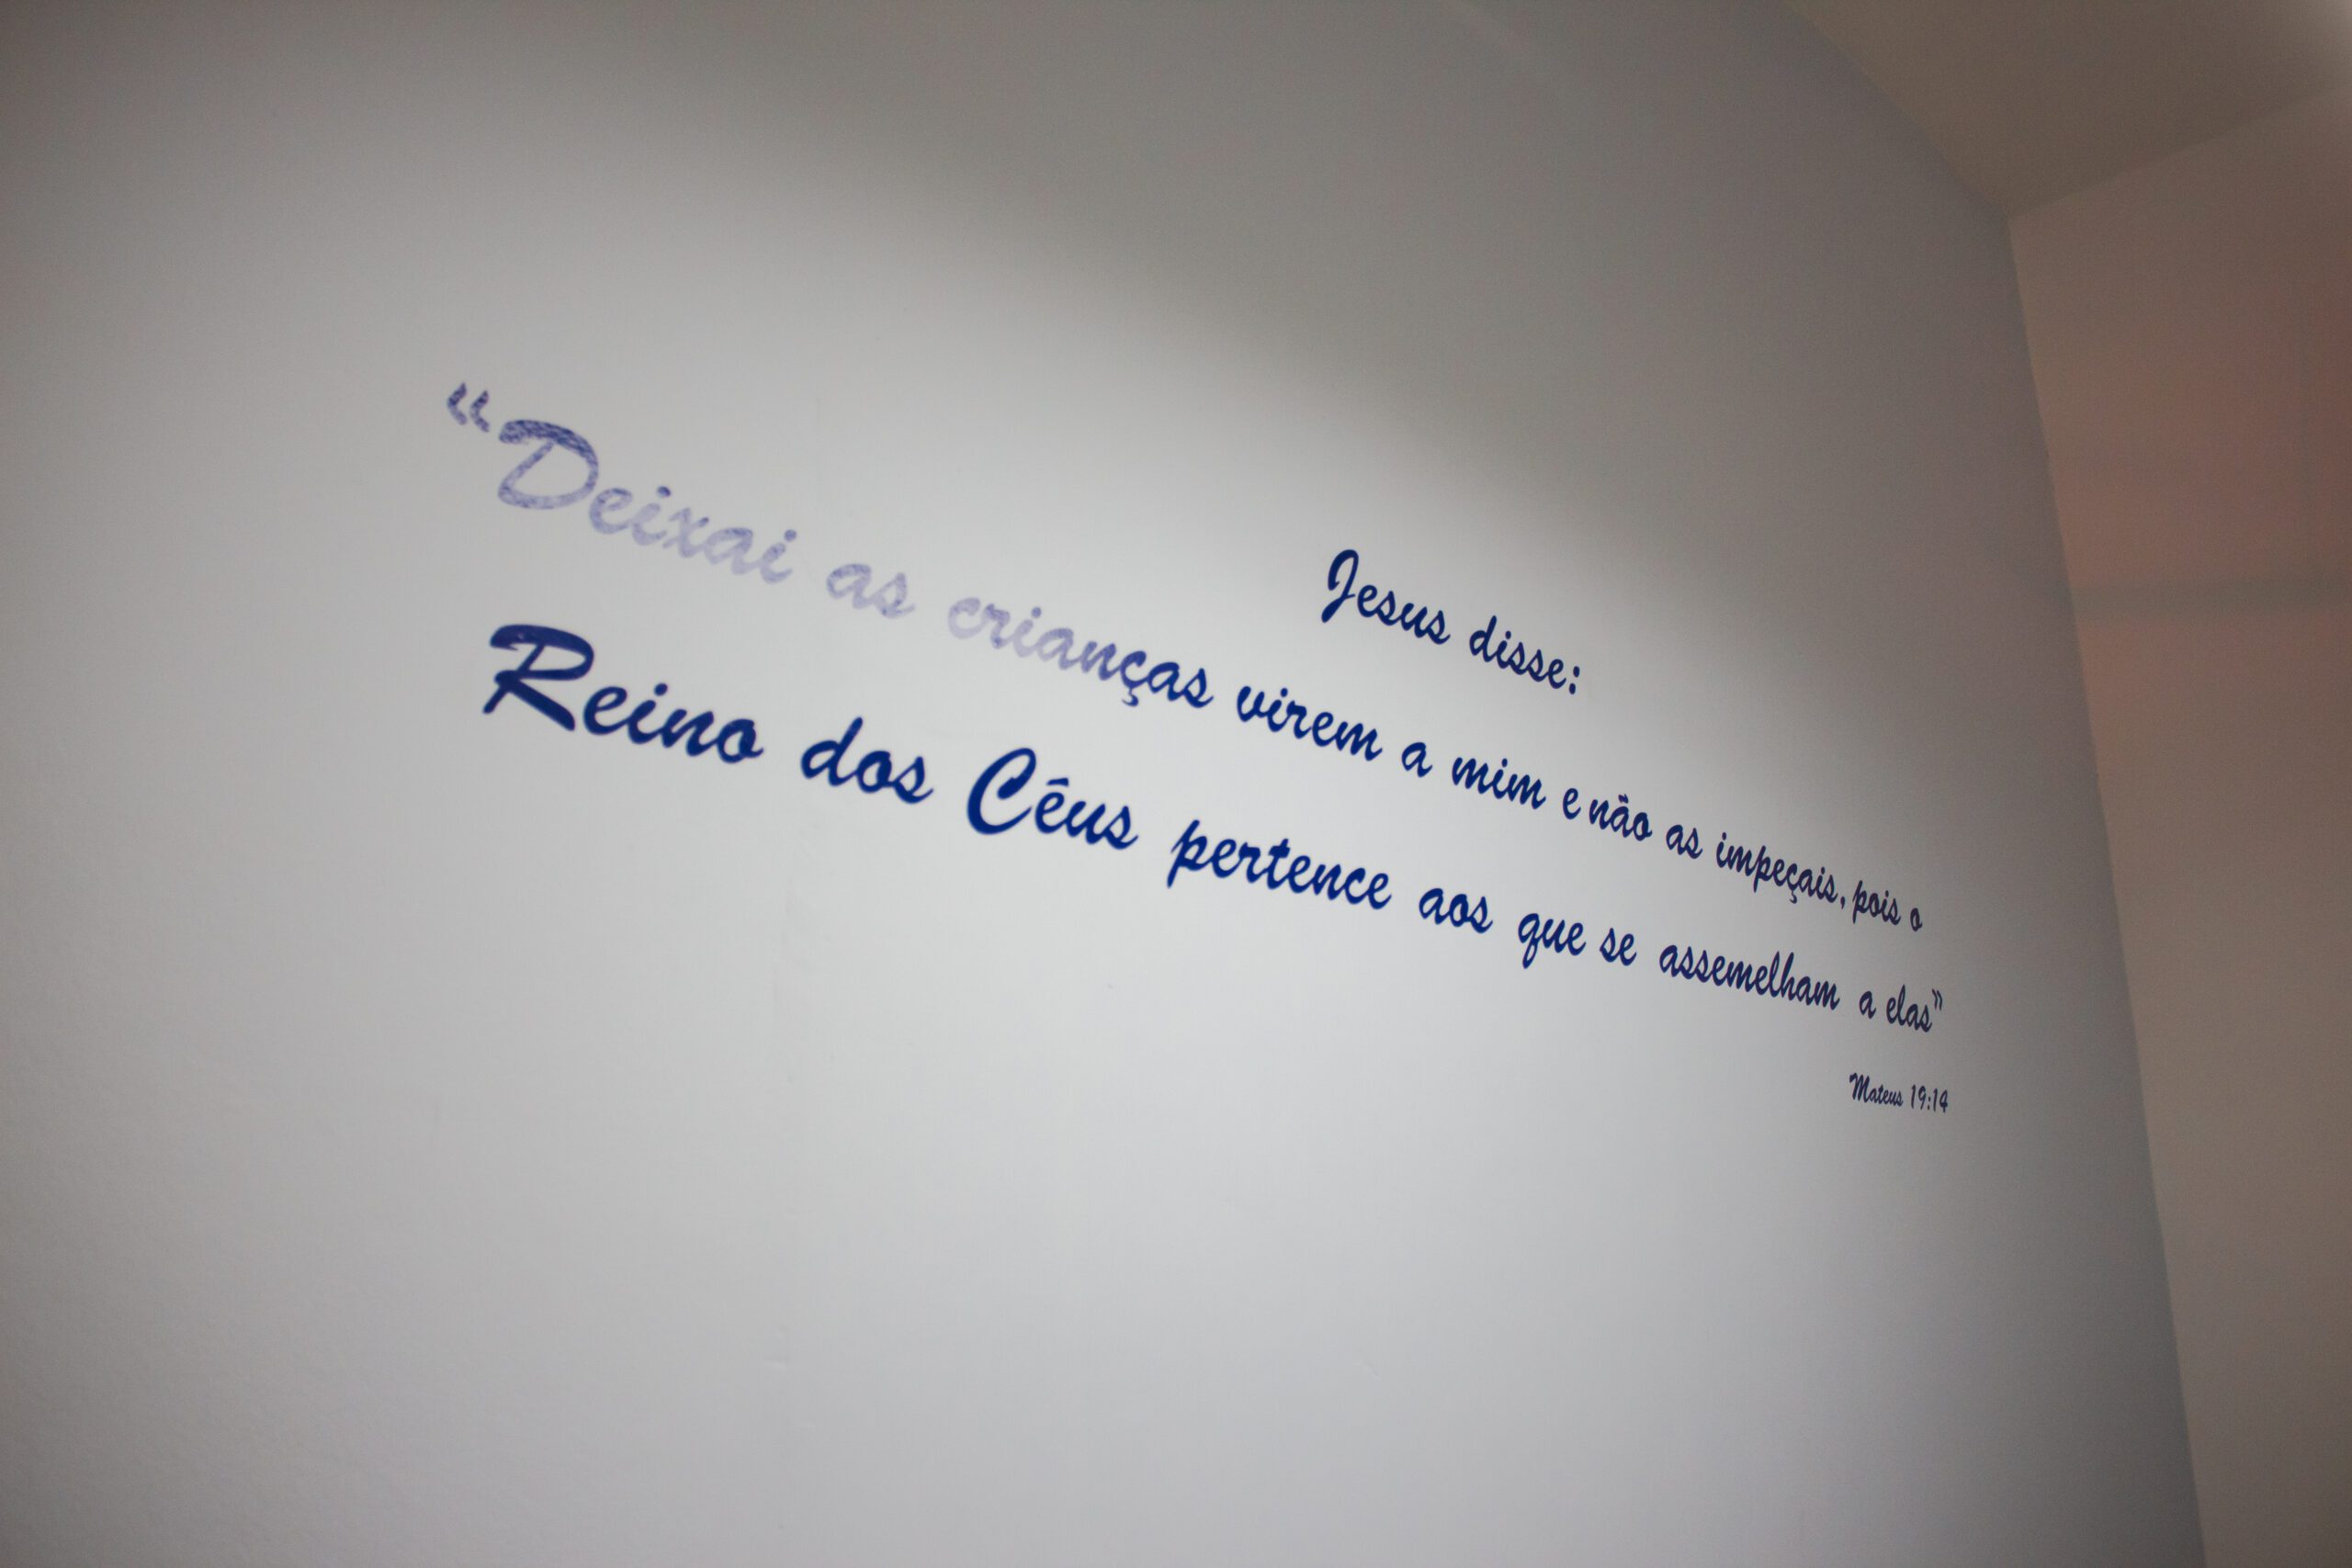 Jesus disse:
“Deixai as crianças virem a mim e não as impeçais, pois o
Reino dos Céus pertence aos que se assemelham a elas”
Mateus 19:14